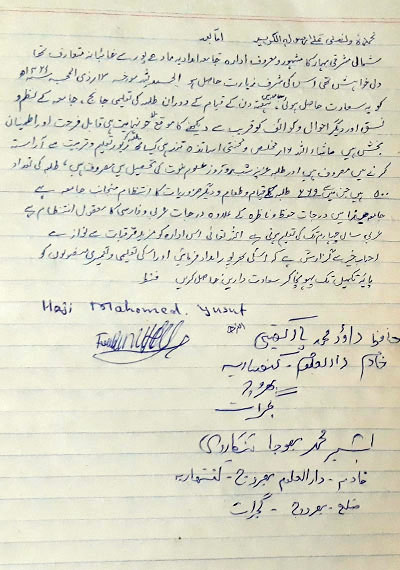 نحمدہ ونصلی علیٰ رسولہ الکریم امابعد
شمالی مشرقی بہار کا مشہور ومعروف ادارہ جامعہ امدادیہ مادھے پور سے غائبانہ متعارف تھا
دلی خواہش تھی اس کی شرف زیارت حاصل ہو الحمدللہ مورخہ ۷ ذی الحجہ
کو یہ سعادت حاصل ہوئی دن کے قیام کے دوران طلبہ کی تعلیمی جانچ، جامعہ کے نظم و
نسق اور دیگر احوال وکوائف کو قریب سے دیکھنے کا موقع ملا جو نہایت ہی قابل فرحت اور اطمینان
بخش ہیں ماشاء اللہ مخلص و محنتی اساتذہ تعلیم وتربیت سے آراستہ
کرنے میں مصروف ہیں اور طلبہ عزیز شب وروز علوم نبوت کی تحصیل میں مصروف ہیں، طلبہ کی تعداد
۵۰۰ ہیں جن میں طلبہ کے قیام وطعام ودیگر ضروریات کا انتظام منجانب جامعہ ہے
جامعہ میں درجات حفظ وناظرہ کے علاوہ درجات عربی وفارسی کا معقول انتظام ہے
عربی سال چہارم تک کی تعلیم ہوتی ہے اللہ تعالیٰ اس ادارہ کو مزید ترقیات سے نوازے
احباب خیر سے گزارش ہے کہ اسکی بھرپور امداد فرمائیں اور اس کی تعلیمی وتعمیری منصوبوں کو
پایۂ تکمیل تک پہونچا کر سعادت دارین حاصل کریں فقط
Haji Mahomed Yusuf
حافظ داؤد محمد
خادم دارالعلوم کنتھاریہ
بھروچ
گجرات
بشیر محمد بھوجا ٹنکاروی
خادم - دارالعلوم بھروچ - کنتھاریہ
ضلع - بھروچ - گجرات